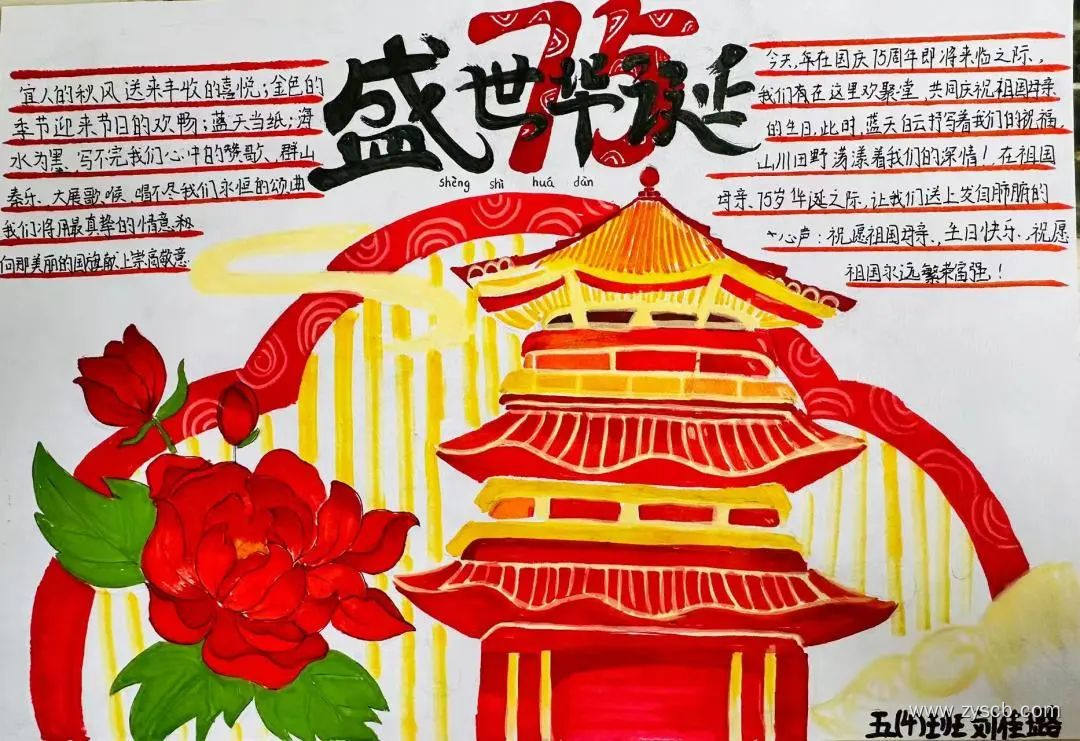 75
盛世华诞
shèng shì huá dàn
宜人的秋风送来丰收的喜悦；金色的
季节迎来节日的欢畅；蓝天当纸；海
水为墨、写不完我们心中的赞歌、群山
奏乐、大展歌喉、唱不尽我们永恒的颂曲
我们将用最真挚的情意积
向那美丽的国旗献上崇高敬意
今天、年在国庆75周年即将来临之际，
我们有在这里欢聚堂，共同庆祝祖国母亲
的生日，此时，蓝天白云抒写着我们的祝福，
山川田野荡漾着我们的深情！在祖国
母亲、75岁华诞之际、让我们送上发自肺腑的
心声：祝愿祖国母亲、生日快乐、祝愿
祖国永远繁荣富强！
五(4)班 刘佳璐
www.zyscb.com